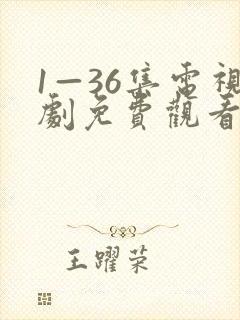 1—36集電視
劇免費觀看
王躍荣